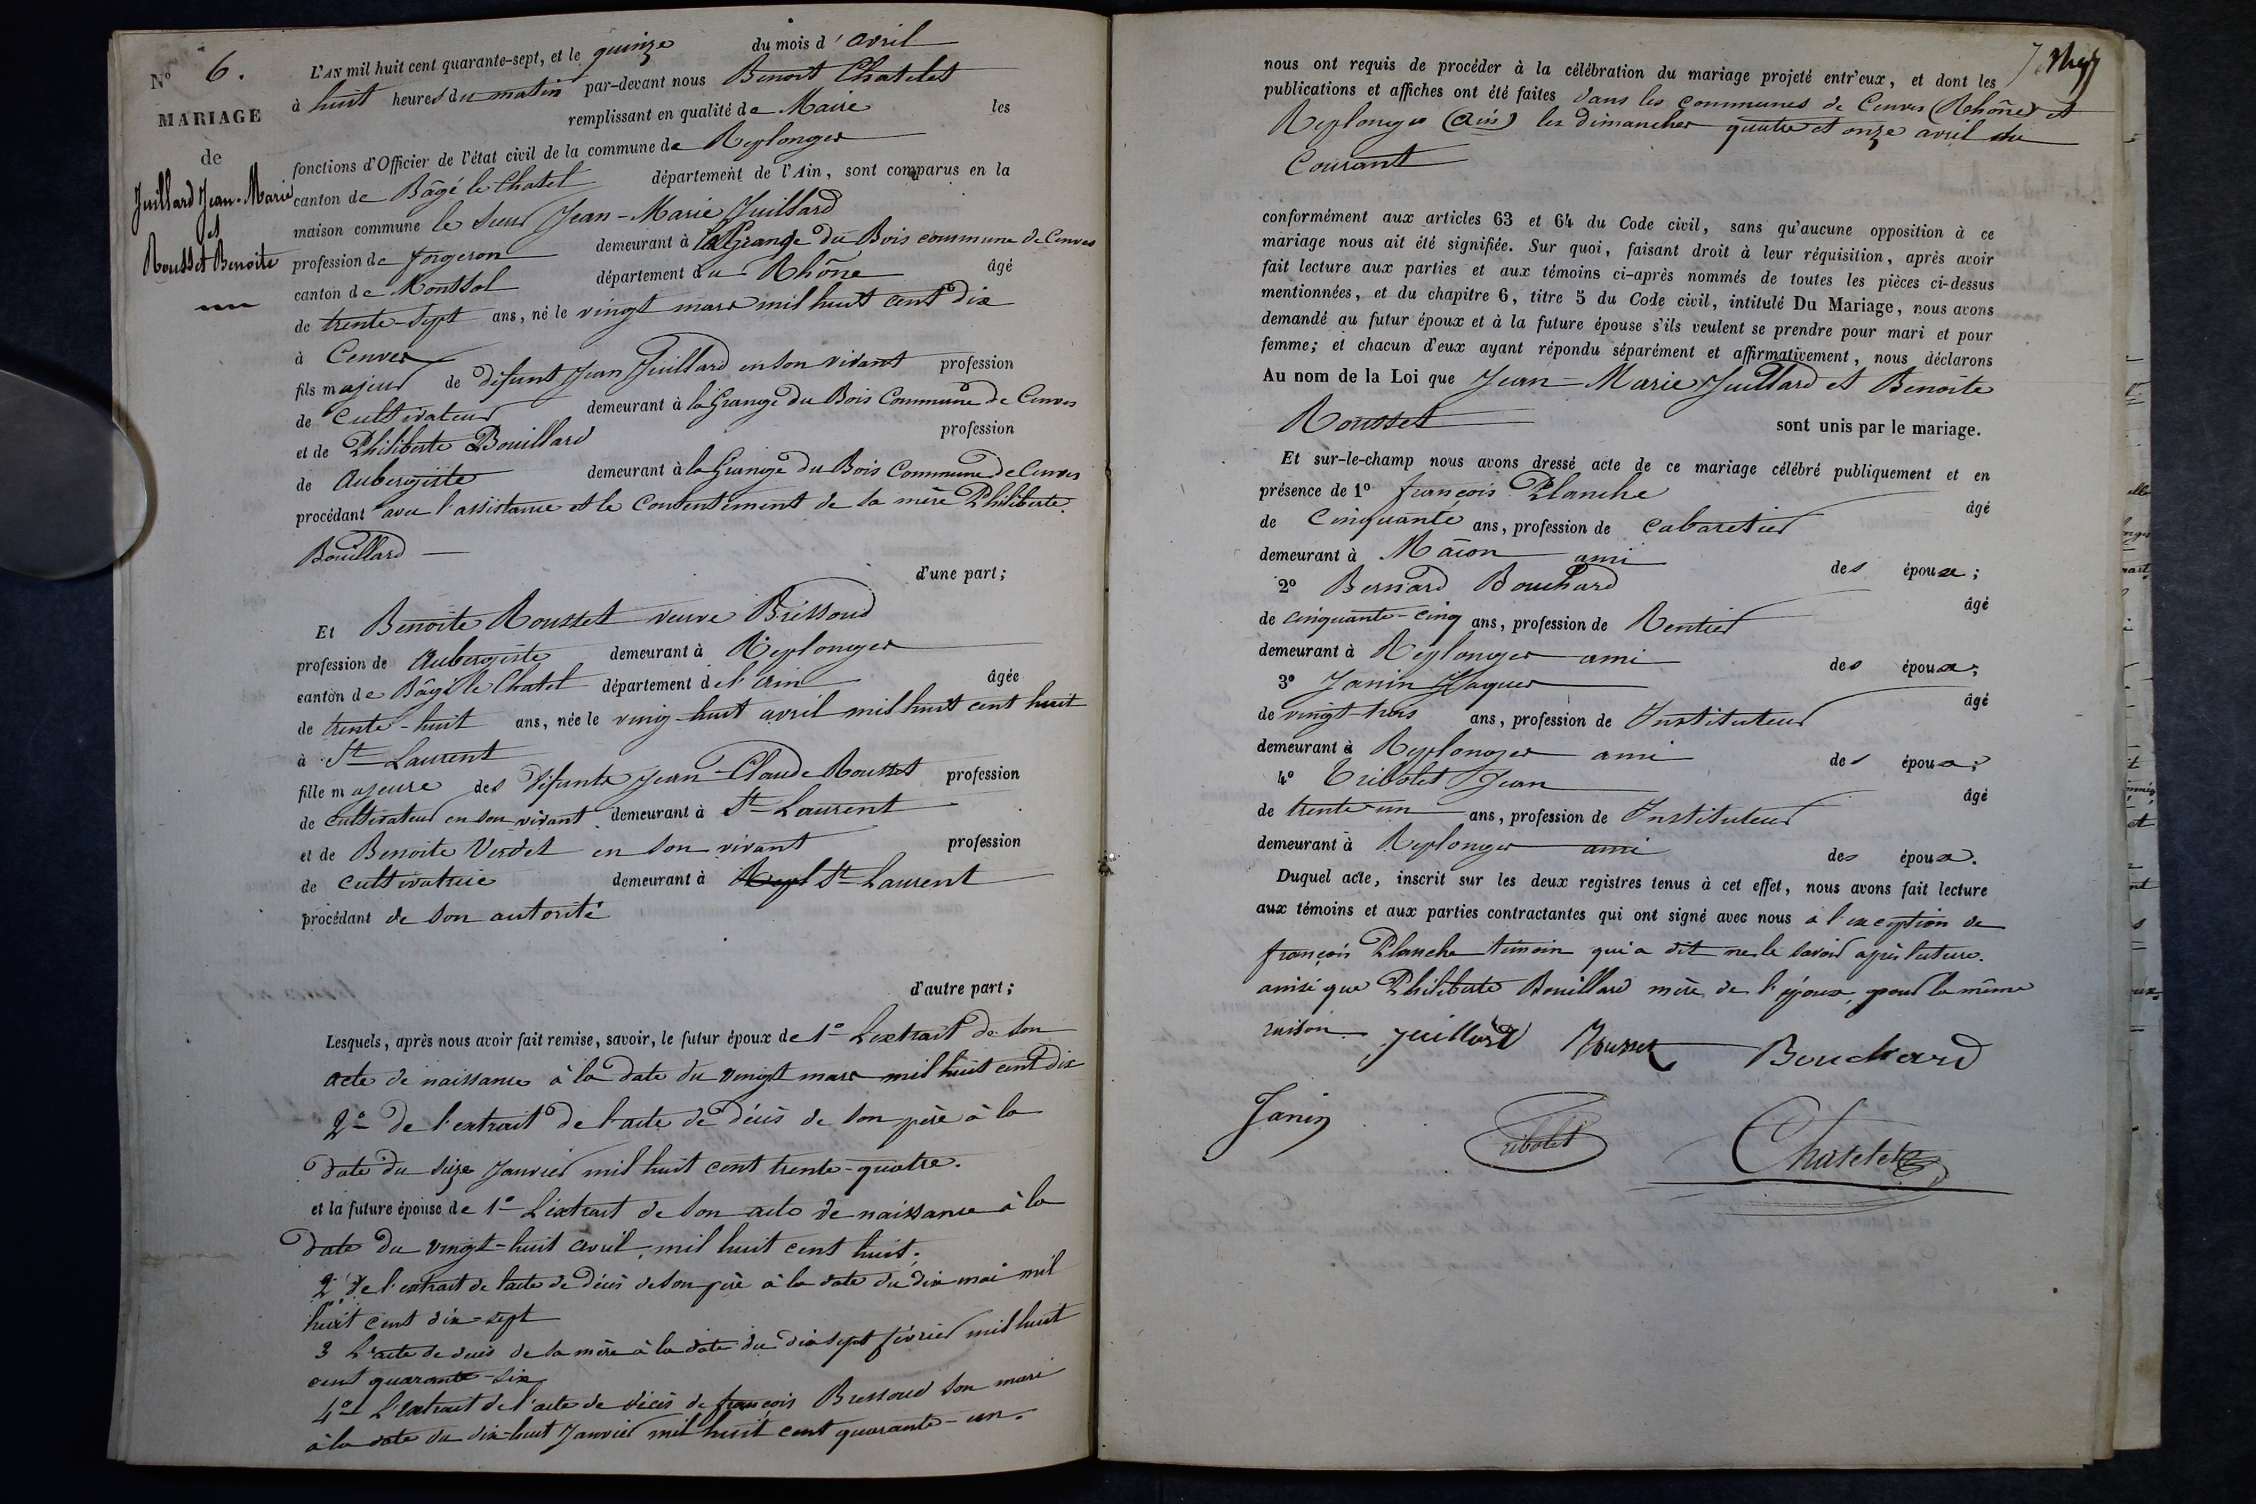 N° 6.
MARIAGE
de
Juillard Jean-Marie
et
Rousset Benoite
L'AN mil huit cent quarante-sept, et le quinze du mois d'avril
à huit heures du matin par-devant nous Benoit Chatelet
remplissant en qualité de Maire les
fonctions d'Officier de l'état civil de la commune de Replonges
canton de Bâgé le Chatel département de l'Ain, sont comparus en la
maison commune le sieur Jean-Marie Juillard
profession de forgeron demeurant à la Grange du Bois commune de Cenves
canton de Monssol département du Rhône âgé
de trente-sept ans, né le vingt mars mil huit cent dix
à Cenves
fils majeur de défunt Jean Juillard en son vivant profession
de cultivateur demeurant à la Grange du Bois Commune de Cenves
et de Philiberte Bouillard profession
de Aubergiste demeurant à la Grange du Bois Commune de Cenves
procédant avec l'assistance et le consentement de sa mère Philiberte
Bouillard
d'une part;
Et Benoite Rousset veuve Bressoud
profession de Aubergiste demeurant à Replonges
canton de Bâgé le Chatel département de l'Ain âgée
de trente-huit ans, née le vingt-huit avril mil huit cent huit
à St Laurent
fille majeure des défunts Jean-Claude Rousset profession
de cultivateur en son vivant demeurant à St Laurent
et de Benoite Verdet en son vivant profession
de cultivatrice demeurant à Repl St Laurent
procédant de son autorité
d'autre part;
Lesquels, après nous avoir fait remise, savoir, le futur époux de 1° L'extrait de son
acte de naissance à la date du vingt mars mil huit cent dix
2° De l'extrait de l'acte de décès de son père à la
date du seize Janvier mil huit cent trente-quatre.
et la future épouse de 1° L'extrait de son acte de naissance à la
date du vingt-huit avril, mil huit cent huit.
2° De l'extrait de l'acte de décès de son père à la date du dix mai mil
huit cent dix-sept
3 L'acte de décès de sa mère à la date du dix sept février mil huit
cent quarante-six
4° L'extrait de l'acte de décès de françois Bressoud son mari
à la date du dix-huit Janvier mil huit cent quarante-un.
nous ont requis de procéder à la célébration du mariage projeté entr'eux, et dont les
publications et affiches ont été faites dans les communes de Cenves (Rhône) et
Replonges (Ain) les dimanches quatre et onze avril du
Courant
conformément aux articles 63 et 64 du Code civil, sans qu'aucune opposition à ce
mariage nous ait été signifiée. Sur quoi, faisant droit à leur réquisition, après avoir
fait lecture aux parties et aux témoins ci-après nommés de toutes les pièces ci-dessus
mentionnées, et du chapitre 6, titre 5 du Code civil, intitulé Du Mariage, nous avons
demandé au futur époux et à la future épouse s'ils veulent se prendre pour mari et pour
femme; et chacun d'eux ayant répondu séparément et affirmativement, nous déclarons
Au nom de la Loi que Jean-Marie Juillard et Benoite
Rousset sont unis par le mariage.
Et sur-le-champ nous avons dressé acte de ce mariage célébré publiquement et en
présence de 1° françois Planche âgé
de Cinquante ans, profession de cabaretier
demeurant à Mâcon ami des époux;
2° Bernard Bouchard âgé
de cinquante-cinq ans, profession de Rentier
demeurant à Replonges ami des époux;
3° Janin Jaques âgé
de vingt-trois ans, profession de Instituteur
demeurant à Replonges ami des époux;
4° Tribolet Jean âgé
de trente-un ans, profession de Instituteur
demeurant à Replonges ami des époux.
Duquel acte, inscrit sur les deux registres tenus à cet effet, nous avons fait lecture
aux témoins et aux parties contractantes qui ont signé avec nous à l'exception de
françois Planche témoin qui a dit ne le savoir après lecture.
ainsi que Philiberte Bouillard mère de l'époux, pour la même
raison juillard Rousset Bouchard
Janin Tribolet Chatelet